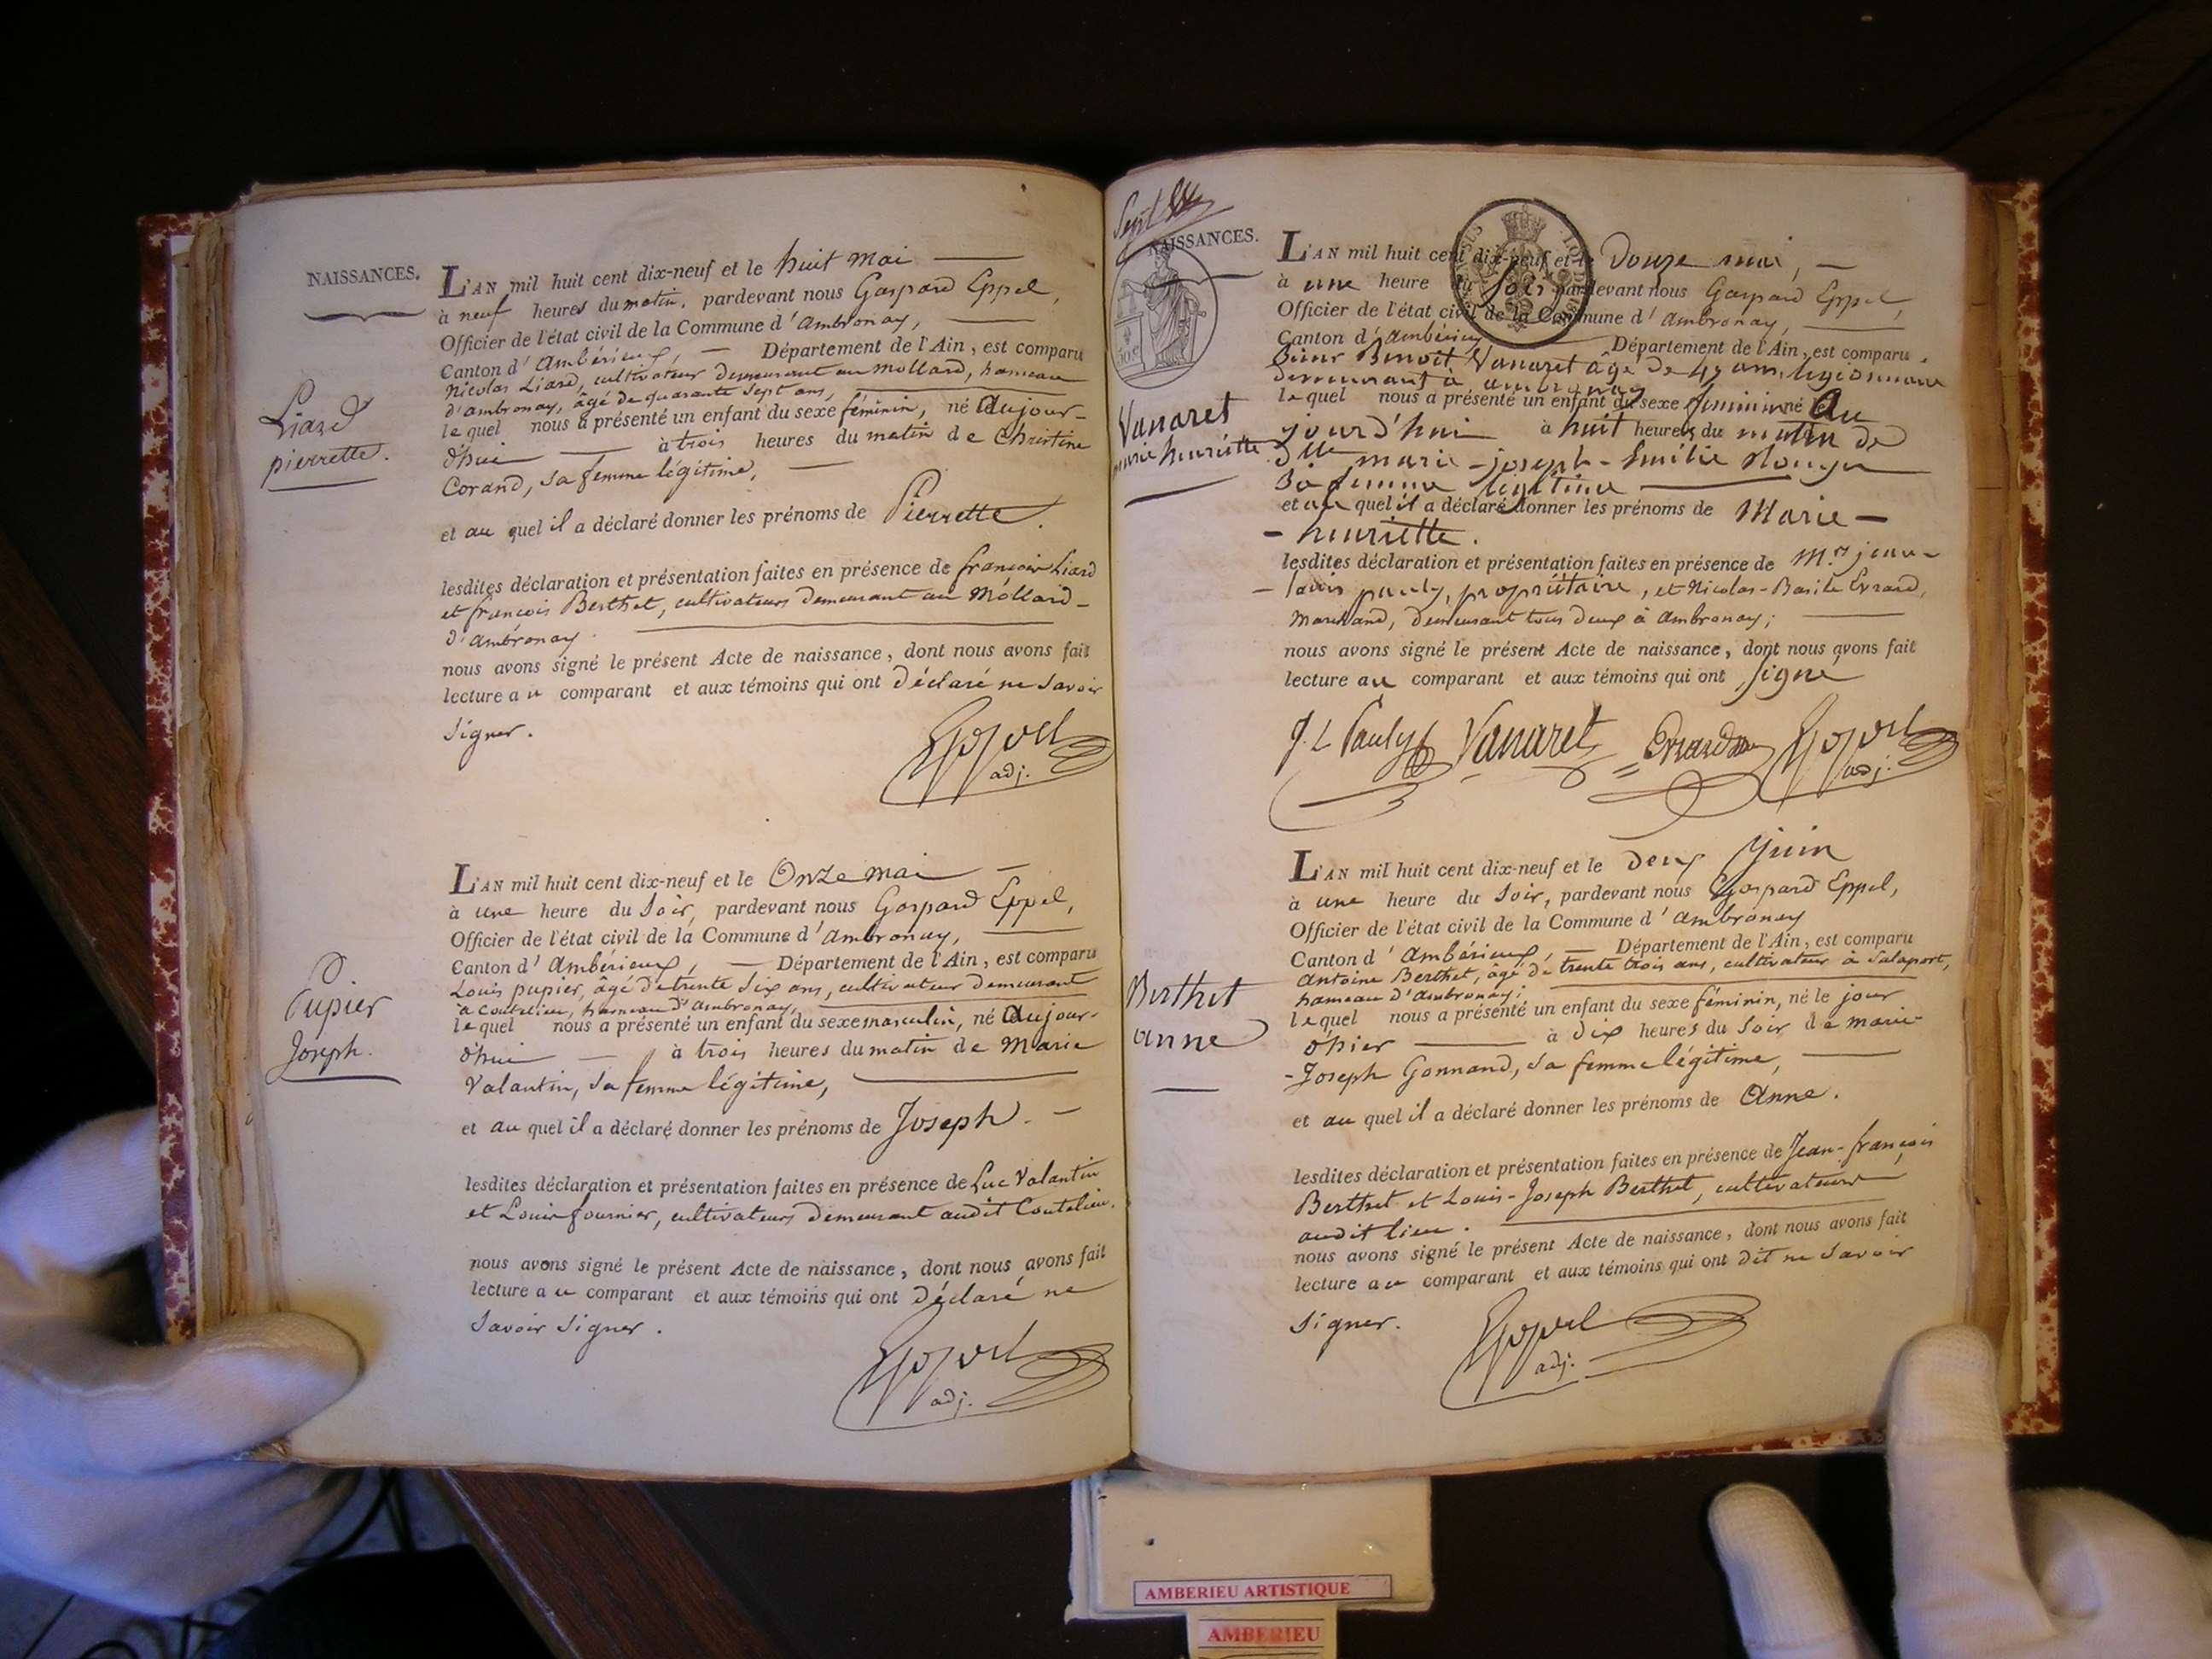 NAISSANCES.
L'AN mil huit cent dix-neuf et le huit mai
à neuf heures du matin, pardevant nous Gaspard Eppel,
Officier de l'état civil de la Commune d'ambronay,
Canton d'ambérieux, Département de l'Ain, est comparu
Nicolas Liard, cultivateur demeurant au mollard, hameau
d'ambronay, âgé de quarante sept ans,
lequel nous a présenté un enfant du sexe féminin, né Aujour-
d'hui à trois heures du matin de Christine
Corand, sa femme légitime,
Liard
pierrette.
et au quel il a déclaré donner les prénoms de Pierrette.
lesdites déclaration et présentation faites en présence de françois Liard
et françois Berthet, cultivateurs demeurant au Mollard-
d'ambronay.
nous avons signé le présent Acte de naissance, dont nous avons fait
lecture au comparant et aux témoins qui ont déclaré ne savoir
signer.
Eppel
adj.
L'AN mil huit cent dix-neuf et le Onze mai
à une heure du soir, pardevant nous Gaspard Eppel,
Officier de l'état civil de la Commune d'ambronay,
Canton d'ambérieux, Département de l'Ain, est comparu
Louis pupier, âgé de trente six ans, cultivateur demeurant
à coutelieu, hameau d'ambronay,
lequel nous a présenté un enfant du sexe masculin, né Aujour-
d'hui à trois heures du matin de Marie
Valantin, sa femme légitime,
Pupier
Joseph.
et au quel il a déclaré donner les prénoms de Joseph.
lesdites déclaration et présentation faites en présence de Luc Valantin
et Louis fournier, cultivateurs demeurant audit Coutelieu.
nous avons signé le présent Acte de naissance, dont nous avons fait
lecture au comparant et aux témoins qui ont déclaré ne
savoir signer.
Eppel
adj.
Sept
NAISSANCES.
L'AN mil huit cent dix-neuf et le Douze mai,
à une heure du Soir pardevant nous Gaspard Eppel,
Officier de l'état civil de la Commune d'ambronay,
Canton d'ambérieux Département de l'Ain, est comparu
Sieur Benoit Vanaret âgé de ans, légionnaire
demeurant à ambronay
lequel nous a présenté un enfant du sexe feminin né le Au
jourd'hui à huit heures du matin de
Dlle marie-joseph-Emilie
Sa femme légitime
Vanaret
marie henriette
et au quel il a déclaré donner les prénoms de Marie-
-henriette.
lesdites déclaration et présentation faites en présence de Mr. jean-
-louis pauly, propriétaire, et Nicolas-Basile Evrard,
marchand, demeurant tous deux à ambronay;
nous avons signé le présent Acte de naissance, dont nous avons fait
lecture au comparant et aux témoins qui ont signé
J. L Pauly Vanaret Evrard Eppel
adj.
L'AN mil huit cent dix-neuf et le deux Juin
à une heure du soir, pardevant nous Gaspard Eppel,
Officier de l'état civil de la Commune d'ambronay
Canton d'ambérieux, Département de l'Ain, est comparu
Antoine Berthet, âgé de trente trois ans, cultivateur à Salaport,
hameau d'ambronay;
lequel nous a présenté un enfant du sexe féminin, né le jour
d'hier à dix heures du soir de marie-
-Joseph Gonnand, sa femme légitime,
Berthet
anne
et au quel il a déclaré donner les prénoms de Anne.
lesdites déclaration et présentation faites en présence de Jean-françois
Berthet et Louis-Joseph Berthet, cultivateurs
audit lieu.
nous avons signé le présent Acte de naissance, dont nous avons fait
lecture au comparant et aux témoins qui ont dit ne savoir
signer.
Eppel
adj.
AMBERIEU ARTISTIQUE
AMBERIEU